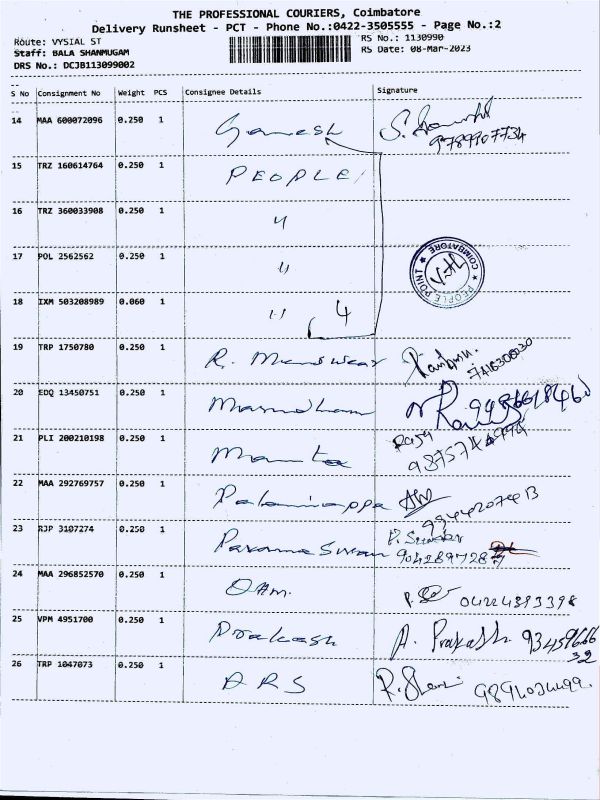 THE PROFESSIONAL COURIERS, Coimbatore
Delivery Runsheet - PCT - Phone No.:0422-3505555 - Page No.:2
Route: VYSIAL ST RS No.: 1130990
Staff: BALA SHANMUGAM RS Date: 08-Mar-2023
DRS No.: DCJB113099002
S No Consignment No Weight PCS Consignee Details Signature
14 MAA 600072096 0.250 1 Ganesh S.
9789907734
15 TRZ 160614764 0.250 1 PEOPLE
16 TRZ 360033908 0.250 1 "
17 POL 2562562 0.250 1 "
PEOPLE POINT ★ COIMBATORE ★
18 IXM 503208989 0.060 1 " 4
19 TRP 1750780 0.250 1 R. Menswear
20 EDQ 13450751 0.250 1
21 PLI 200210198 0.250 1 Mamta Raja
22 MAA 292769757 0.250 1 Palaniappa
23 RJP 3107274 0.250 1 Parama Sivan P. Sundar
24 MAA 296852570 0.250 1 Oam. 04224393398
25 VPM 4951700 0.250 1 Prakash A. Prakash 93459666
32
26 TRP 1047073 0.250 1 ARS